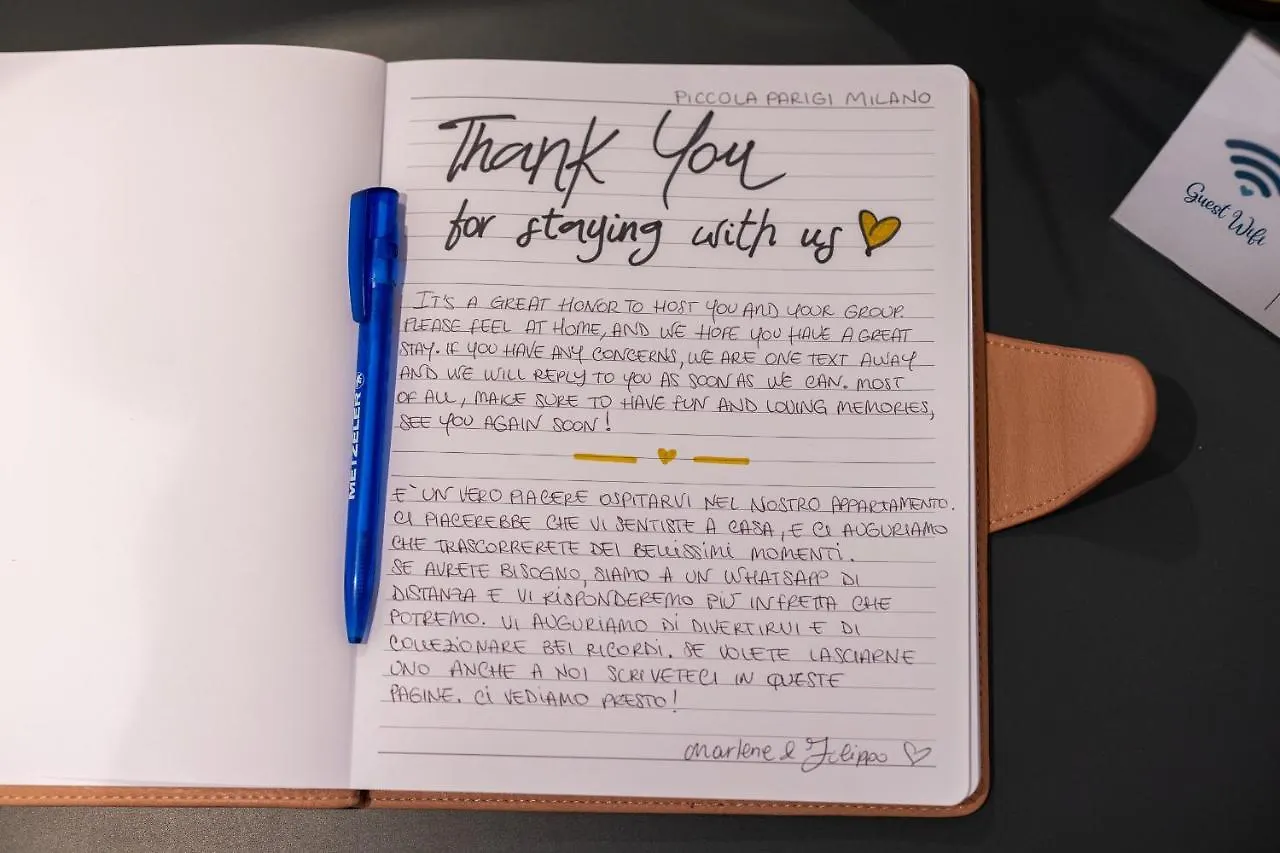 PICCOLA PARIGI MILANO
Thank You
for staying with us
IT'S A GREAT HONOR TO HOST YOU AND YOUR GROUP.
PLEASE FEEL AT HOME, AND WE HOPE YOU HAVE A GREAT
STAY. IF YOU HAVE ANY CONCERNS, WE ARE ONE TEXT AWAY
AND WE WILL REPLY TO YOU AS SOON AS WE CAN. MOST
OF ALL, MAKE SURE TO HAVE FUN AND LOVING MEMORIES,
SEE YOU AGAIN SOON!
E' UN VERO PIACERE OSPITARVI NEL NOSTRO APPARTAMENTO.
CI PIACEREBBE CHE VI SENTISTE A CASA, E CI AUGURIAMO
CHE TRASCORRERETE DEI BELLISSIMI MOMENTI.
SE AVRETE BISOGNO, SIAMO A UN WHATSAPP DI
DISTANZA E VI RISPONDEREMO PIÙ IN FRETTA CHE
POTREMO. VI AUGURIAMO DI DIVERTIRVI E DI
COLLEZIONARE BEI RICORDI. SE VOLETE LASCIARNE
UNO ANCHE A NOI SCRIVETECI IN QUESTE
PAGINE. CI VEDIAMO PRESTO!
Marlene & Filippo
METZELER
Guest Wifi